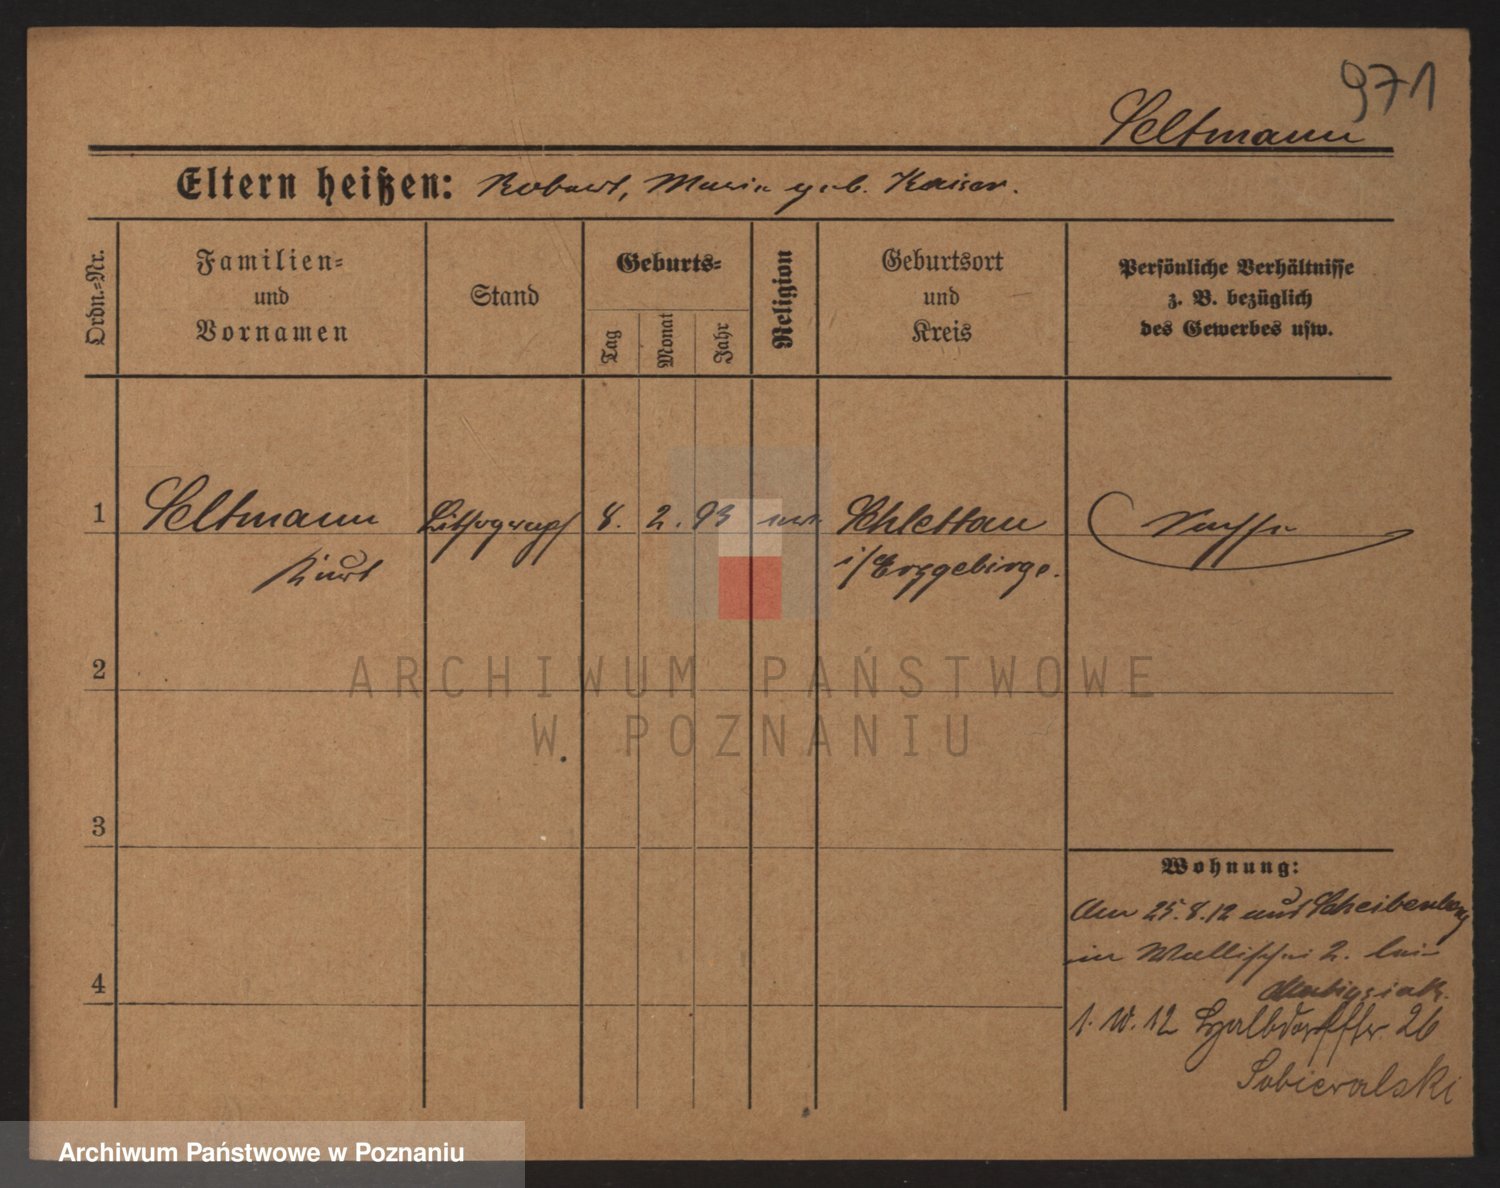 971
Seltmann
Eltern heißen: Robert, Marie geb. Kaiser.
Ordn.-Nr.
Familien-
und
Vornamen
Stand
Geburts-
Tag
Monat
Jahr
Religion
Geburtsort
und
Kreis
Persönliche Verhältnisse
z. B. bezüglich
des Gewerbes usw.
1 Seltmann Lithograph 8. 2. 93 Schlettau
Kurt i/Erzgebirge.
2
ARCHIWUM PAŃSTWOWE
W POZNANIU
3
Wohnung:
Am 25.8.12 aus Scheibenberg
in Wallischei 2. bei
4
1. 10. 12 Halbdorffstr. 26
Sobieralski
Archiwum Państwowe w Poznaniu